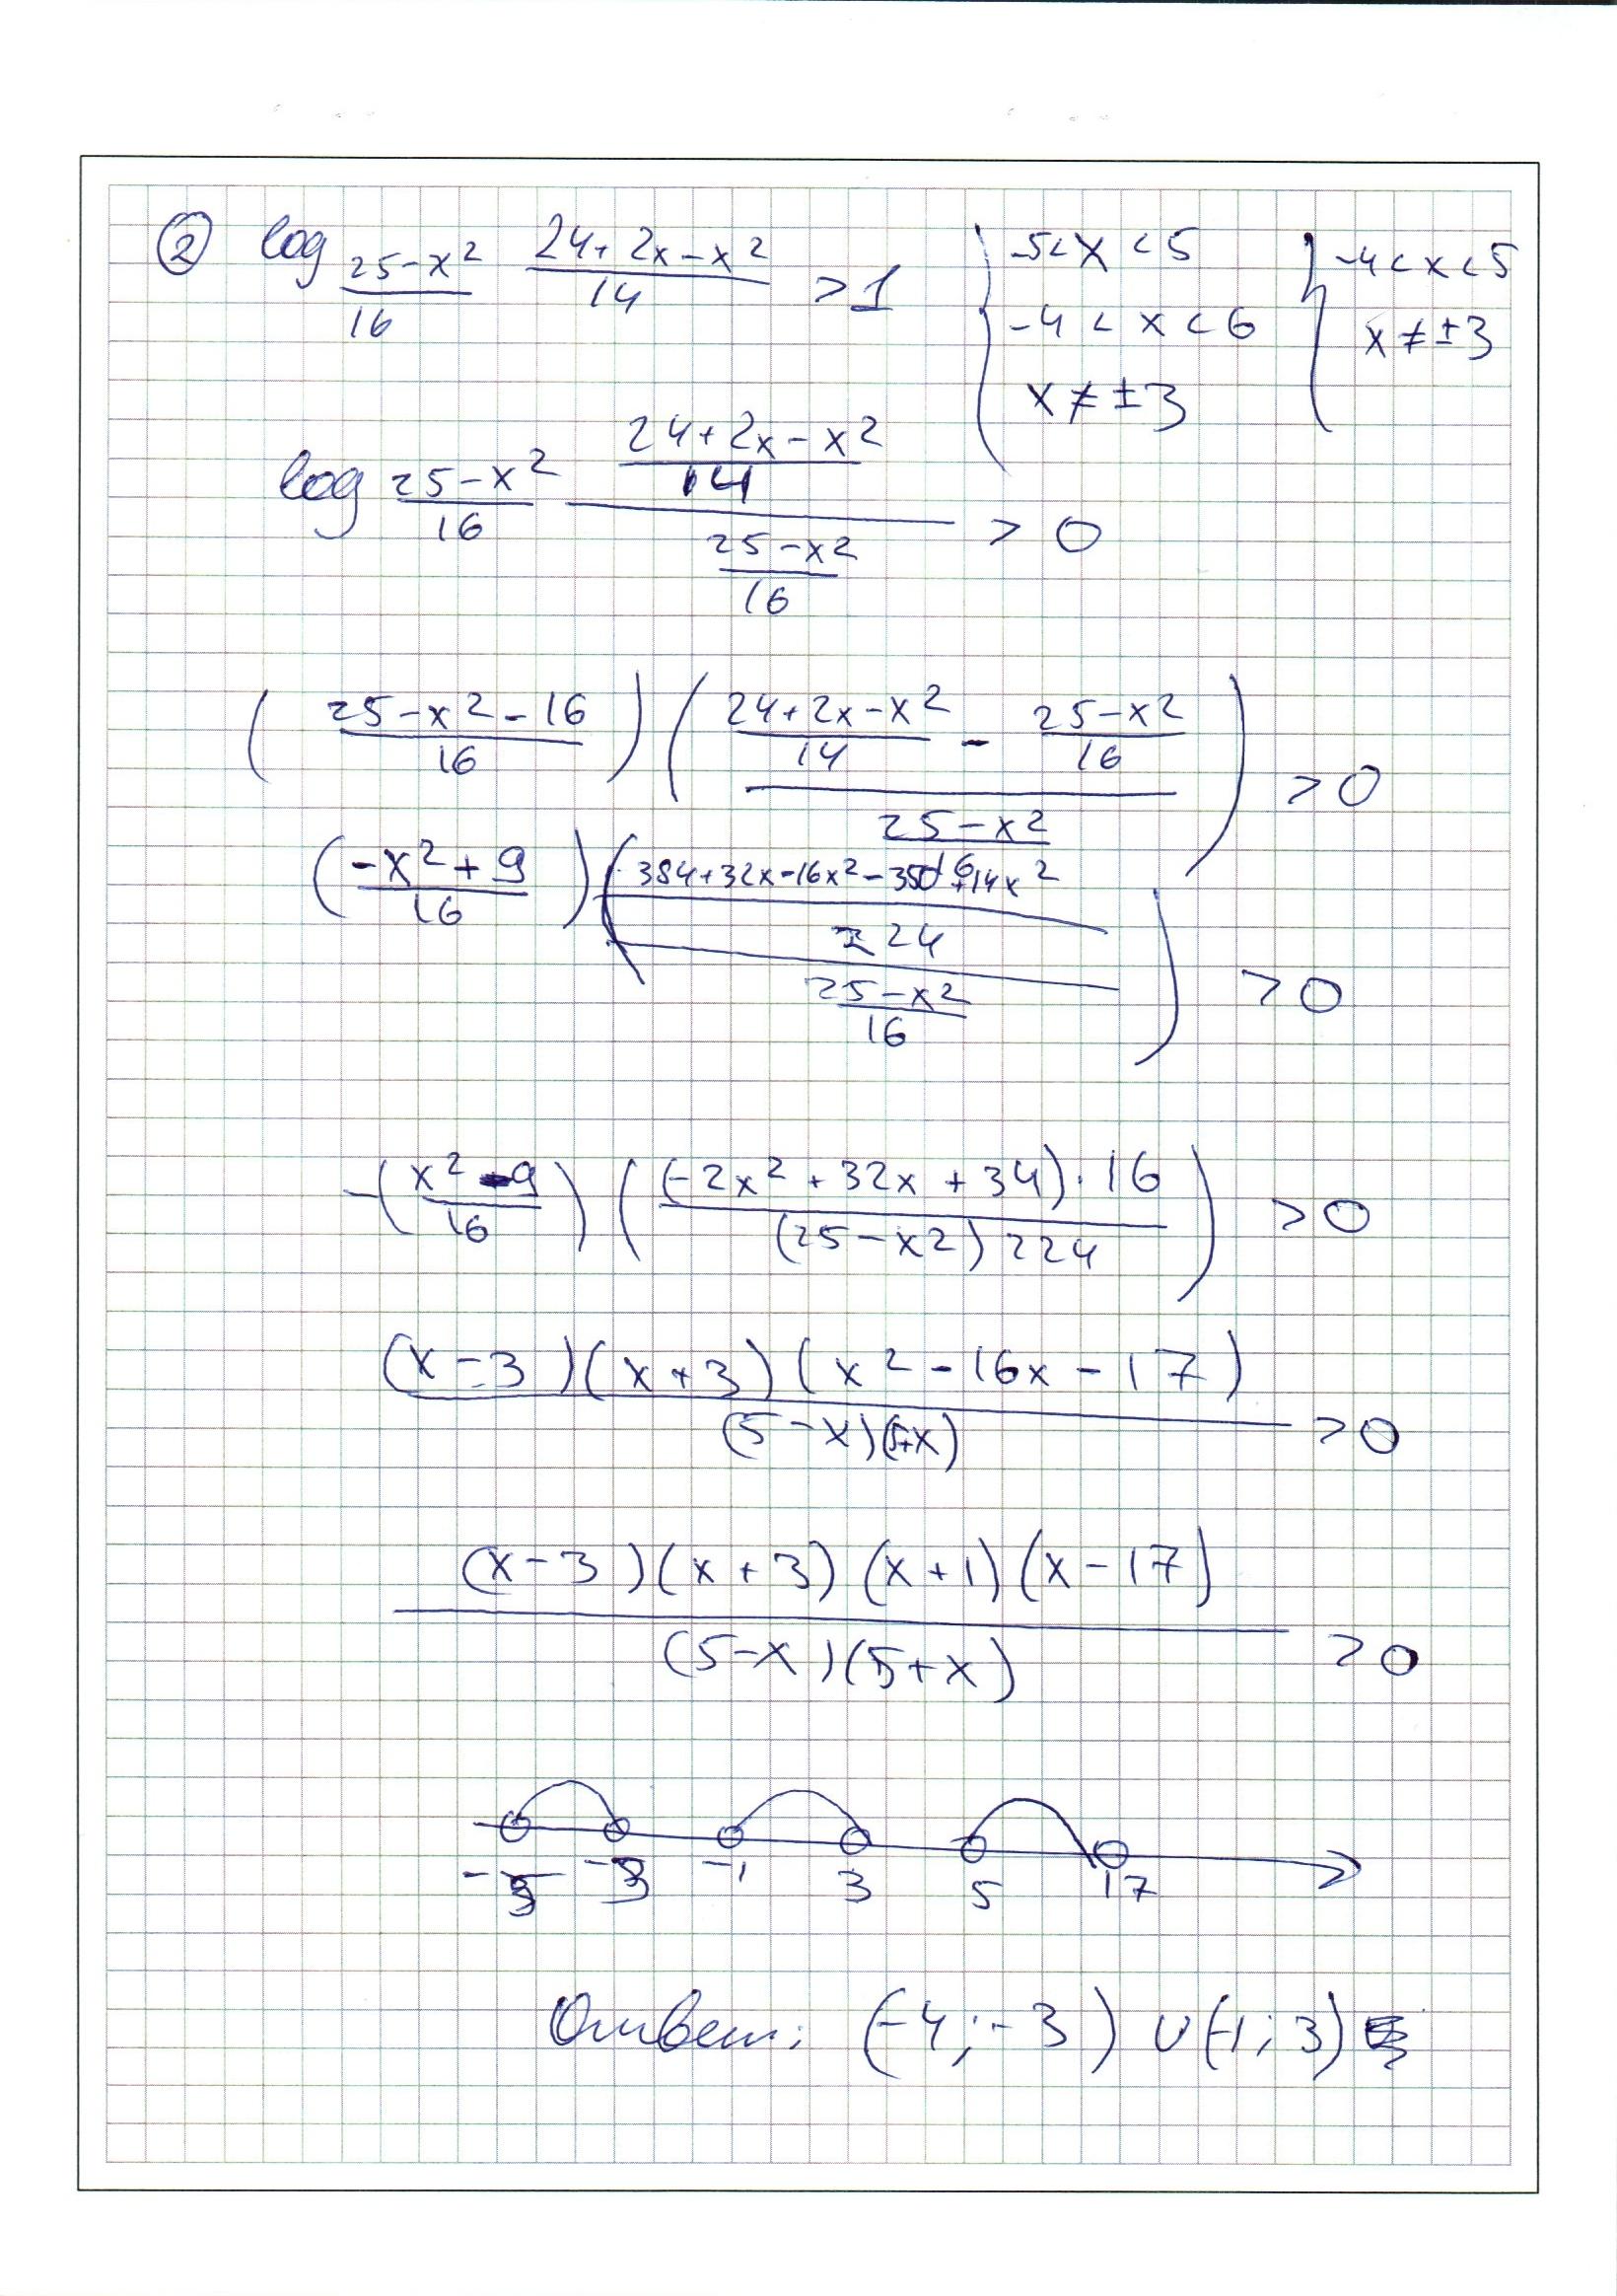 ② log_{(25-x²)/16} (24+2x-x²)/14 > 1 { -5<x<5 { -4<x<5
-4<x<6 x≠±3
x≠±3
log_{(25-x²)/16} ((24+2x-x²)/14)/((25-x²)/16) > 0
((25-x²-16)/16) (((24+2x-x²)/14 - (25-x²)/16)/((25-x²)/16)) > 0
((-x²+9)/16) (((384+32x-16x²-350+14x²)/224)/((25-x²)/16)) > 0
-((x²-9)/16) (((-2x²+32x+34)·16)/((25-x²)224)) > 0
((x-3)(x+3)(x²-16x-17))/((5-x)(5+x)) > 0
((x-3)(x+3)(x+1)(x-17))/((5-x)(5+x)) > 0
-5 -3 -1 3 5 17
Ответ: (-4;-3) ∪ (-1;3)